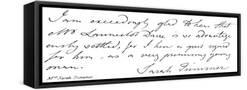 I am exceedingly glad to hear that
Mr is so advantage
ously settled, for I have a great regard
for him, as a very promising young
man.
Sarah Trimmer
Mrs Sarah Trimmer